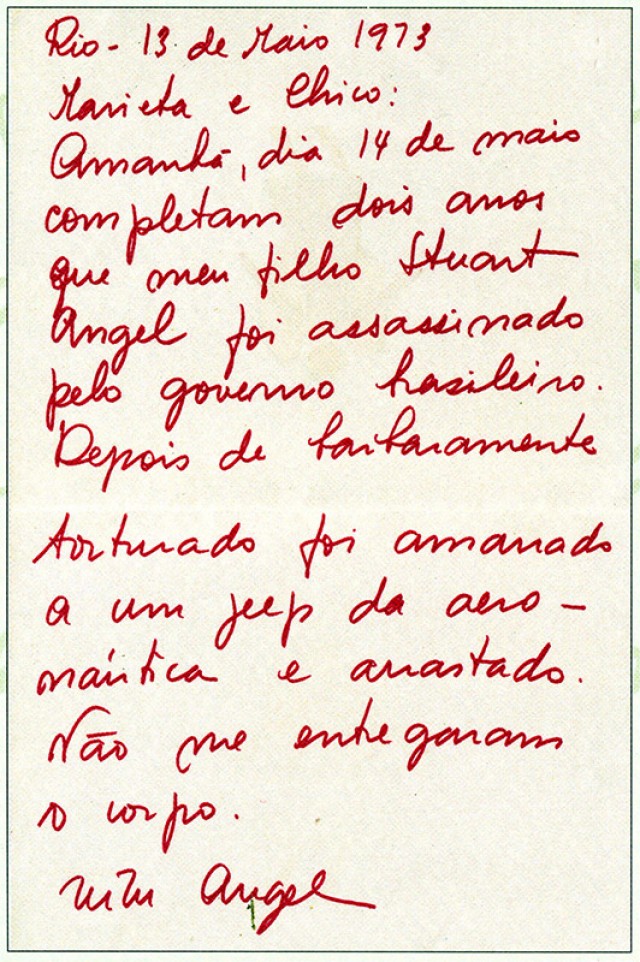 Rio - 13 de Maio 1973
Marieta e Chico:
Amanhã, dia 14 de maio
completam dois anos
que meu filho Stuart
Angel foi assassinado
pelo governo brasileiro.
Depois de barbaramente
torturado foi amarrado
a um jeep da aero-
náutica e arrastado.
Não me entregaram
o corpo.
Zuzu Angel
1